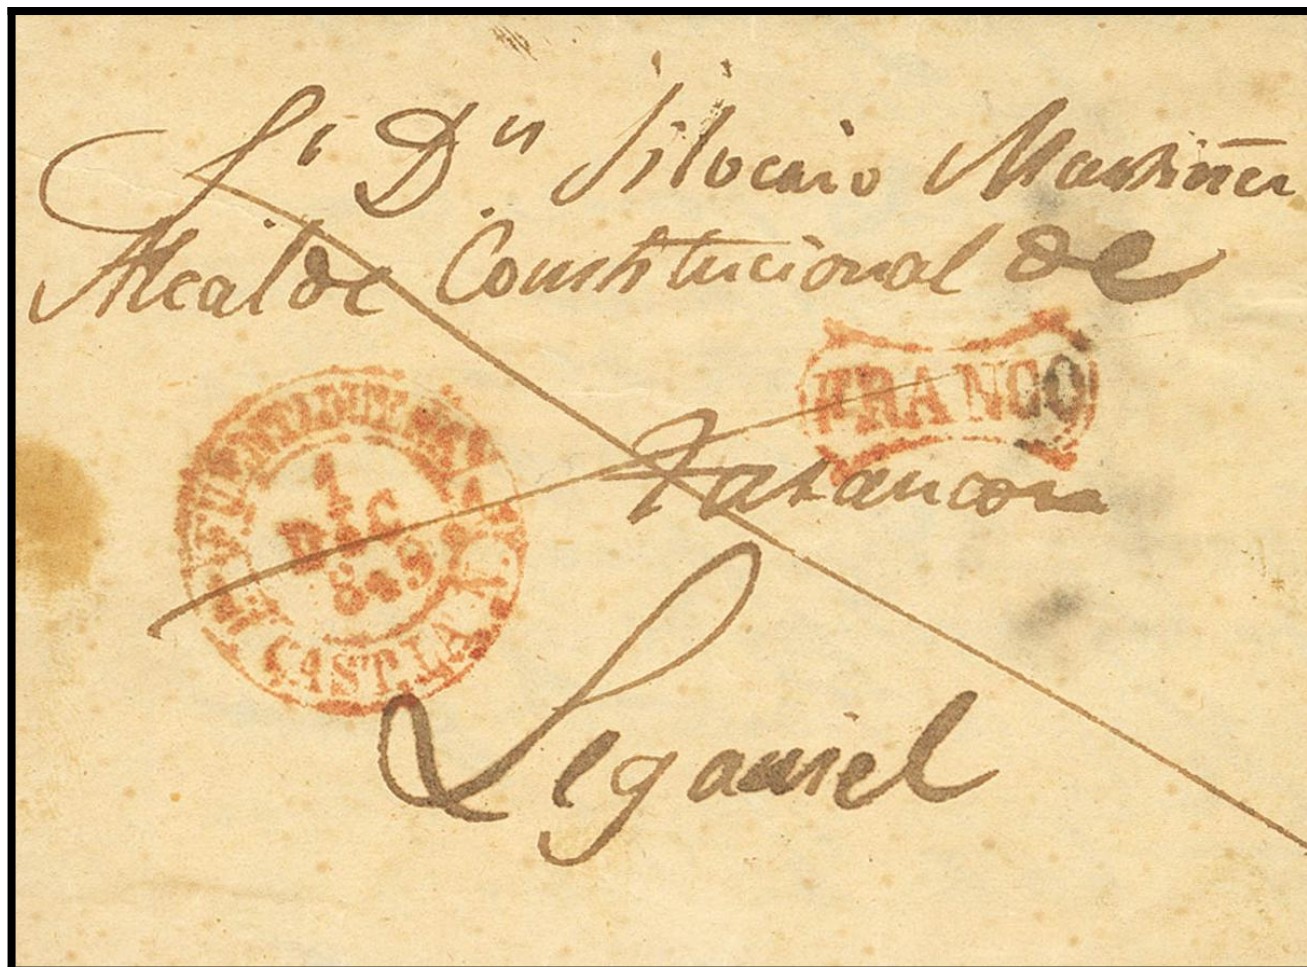 Sr Dn Silverio Martinez
Alcalde Constitucional de
FRANCO
Tarancon
FUENTIDUEÑA
1
DIC
849
CAST. LA N.
Leganiel